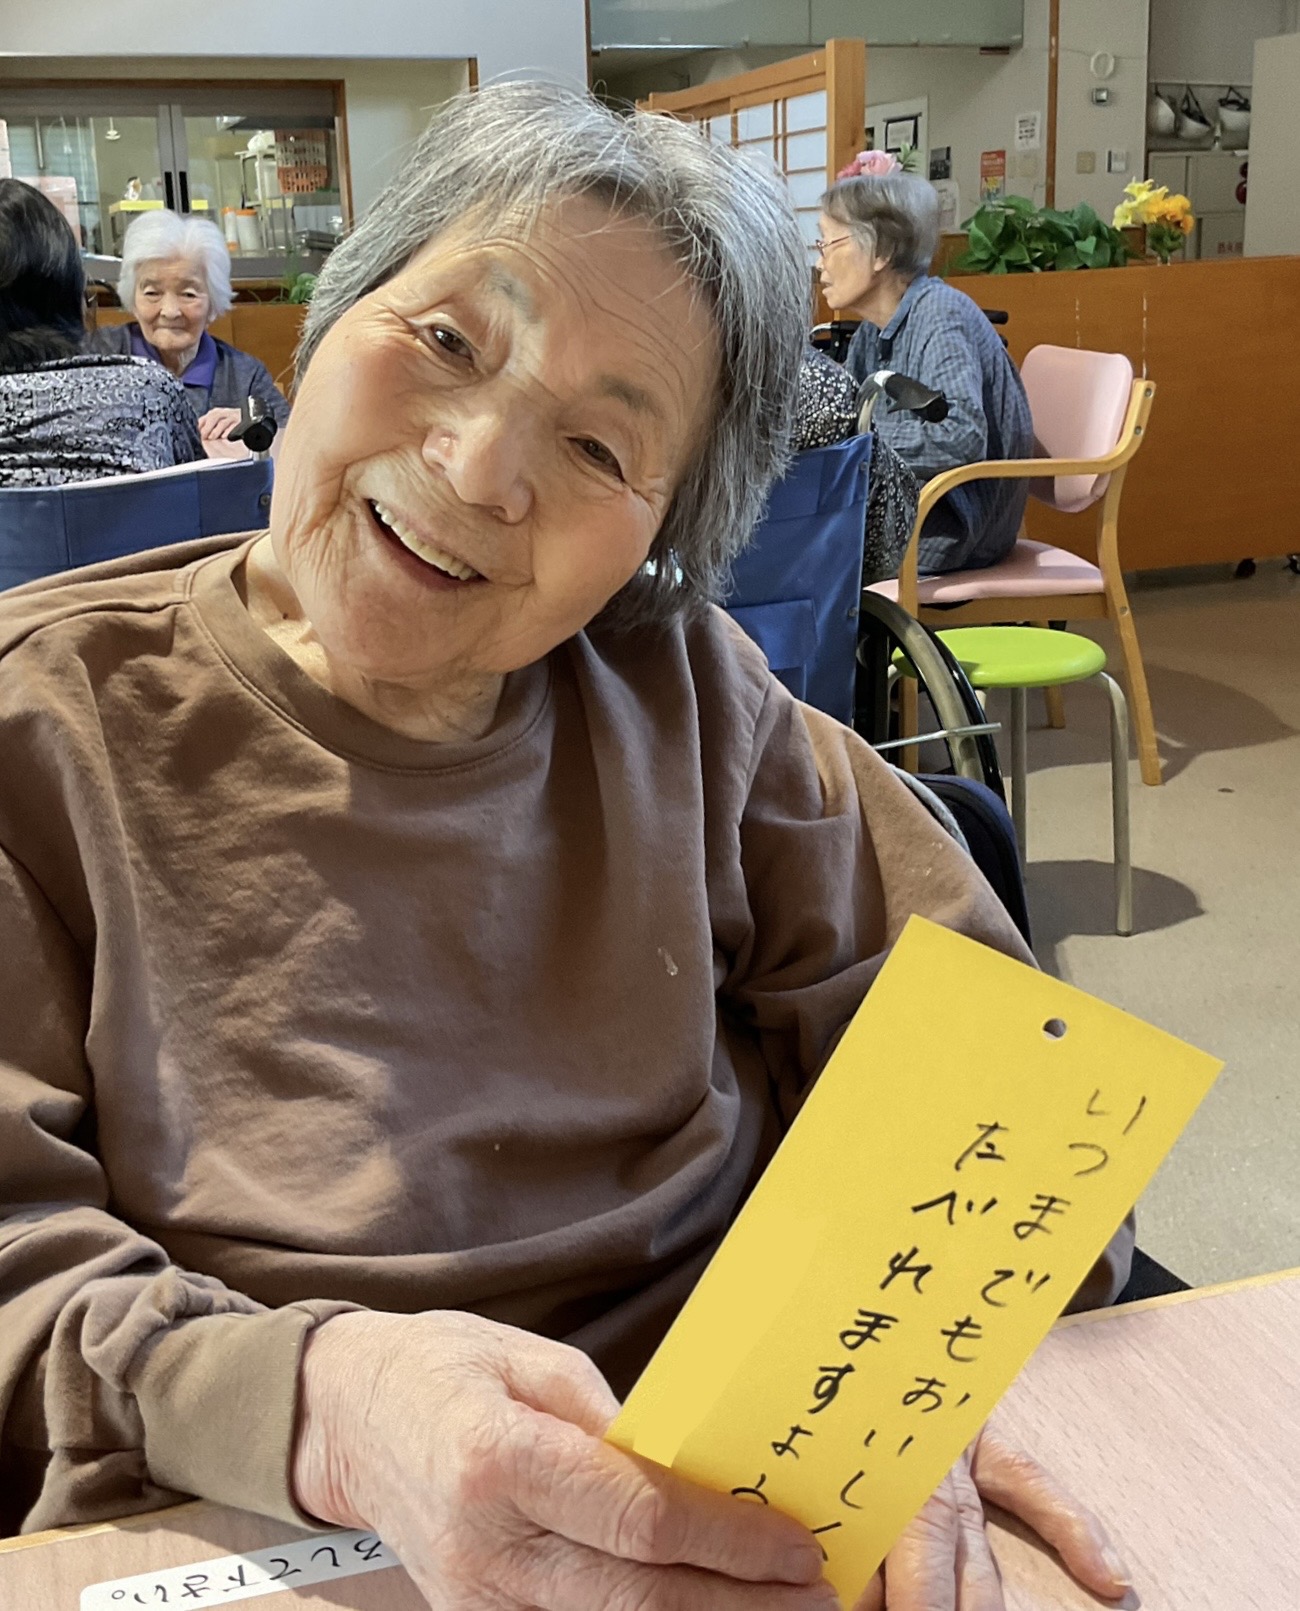 いつまでもおいしく
たべれますよう
ろして下さい。